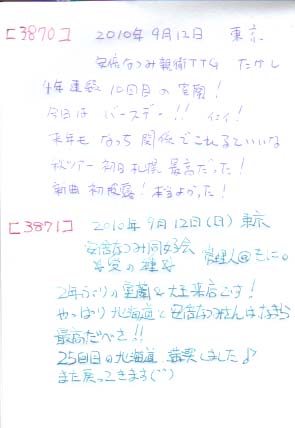 [3870] 2010年9月12日 東京
安倍なつみ親衛TTG たけし
4年連続 10回目の室蘭!
今日は バースデー!! イエイ!
来年も なっち関係でこれるといいな
秋ツアー初日札幌 最高だった!
新曲初披露! 本当よかった!
[3871] 2010年9月12日(日) 東京
安倍なつみ同好会
管理人@もにo
2年ぶりの室蘭&大王来店です!
やっぱり北海道と安倍なつみさんはなまら
最高だべさ!!
25回目の北海道 満喫しました♪
また戻ってきます(^^)